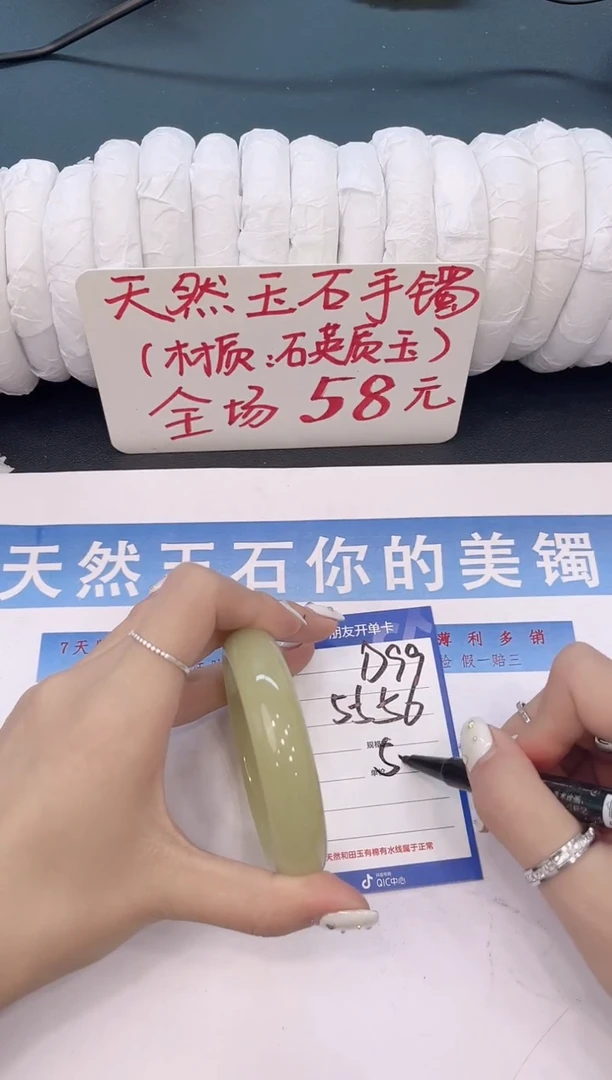 天然玉石手镯
(材质:石英质玉)
全场 58元
天然玉石你的美镯
7天
薄利多销
假一赔三
朋友开单卡
D99
规格
5
天然和田玉有棉有水线属于正常
QIC中心